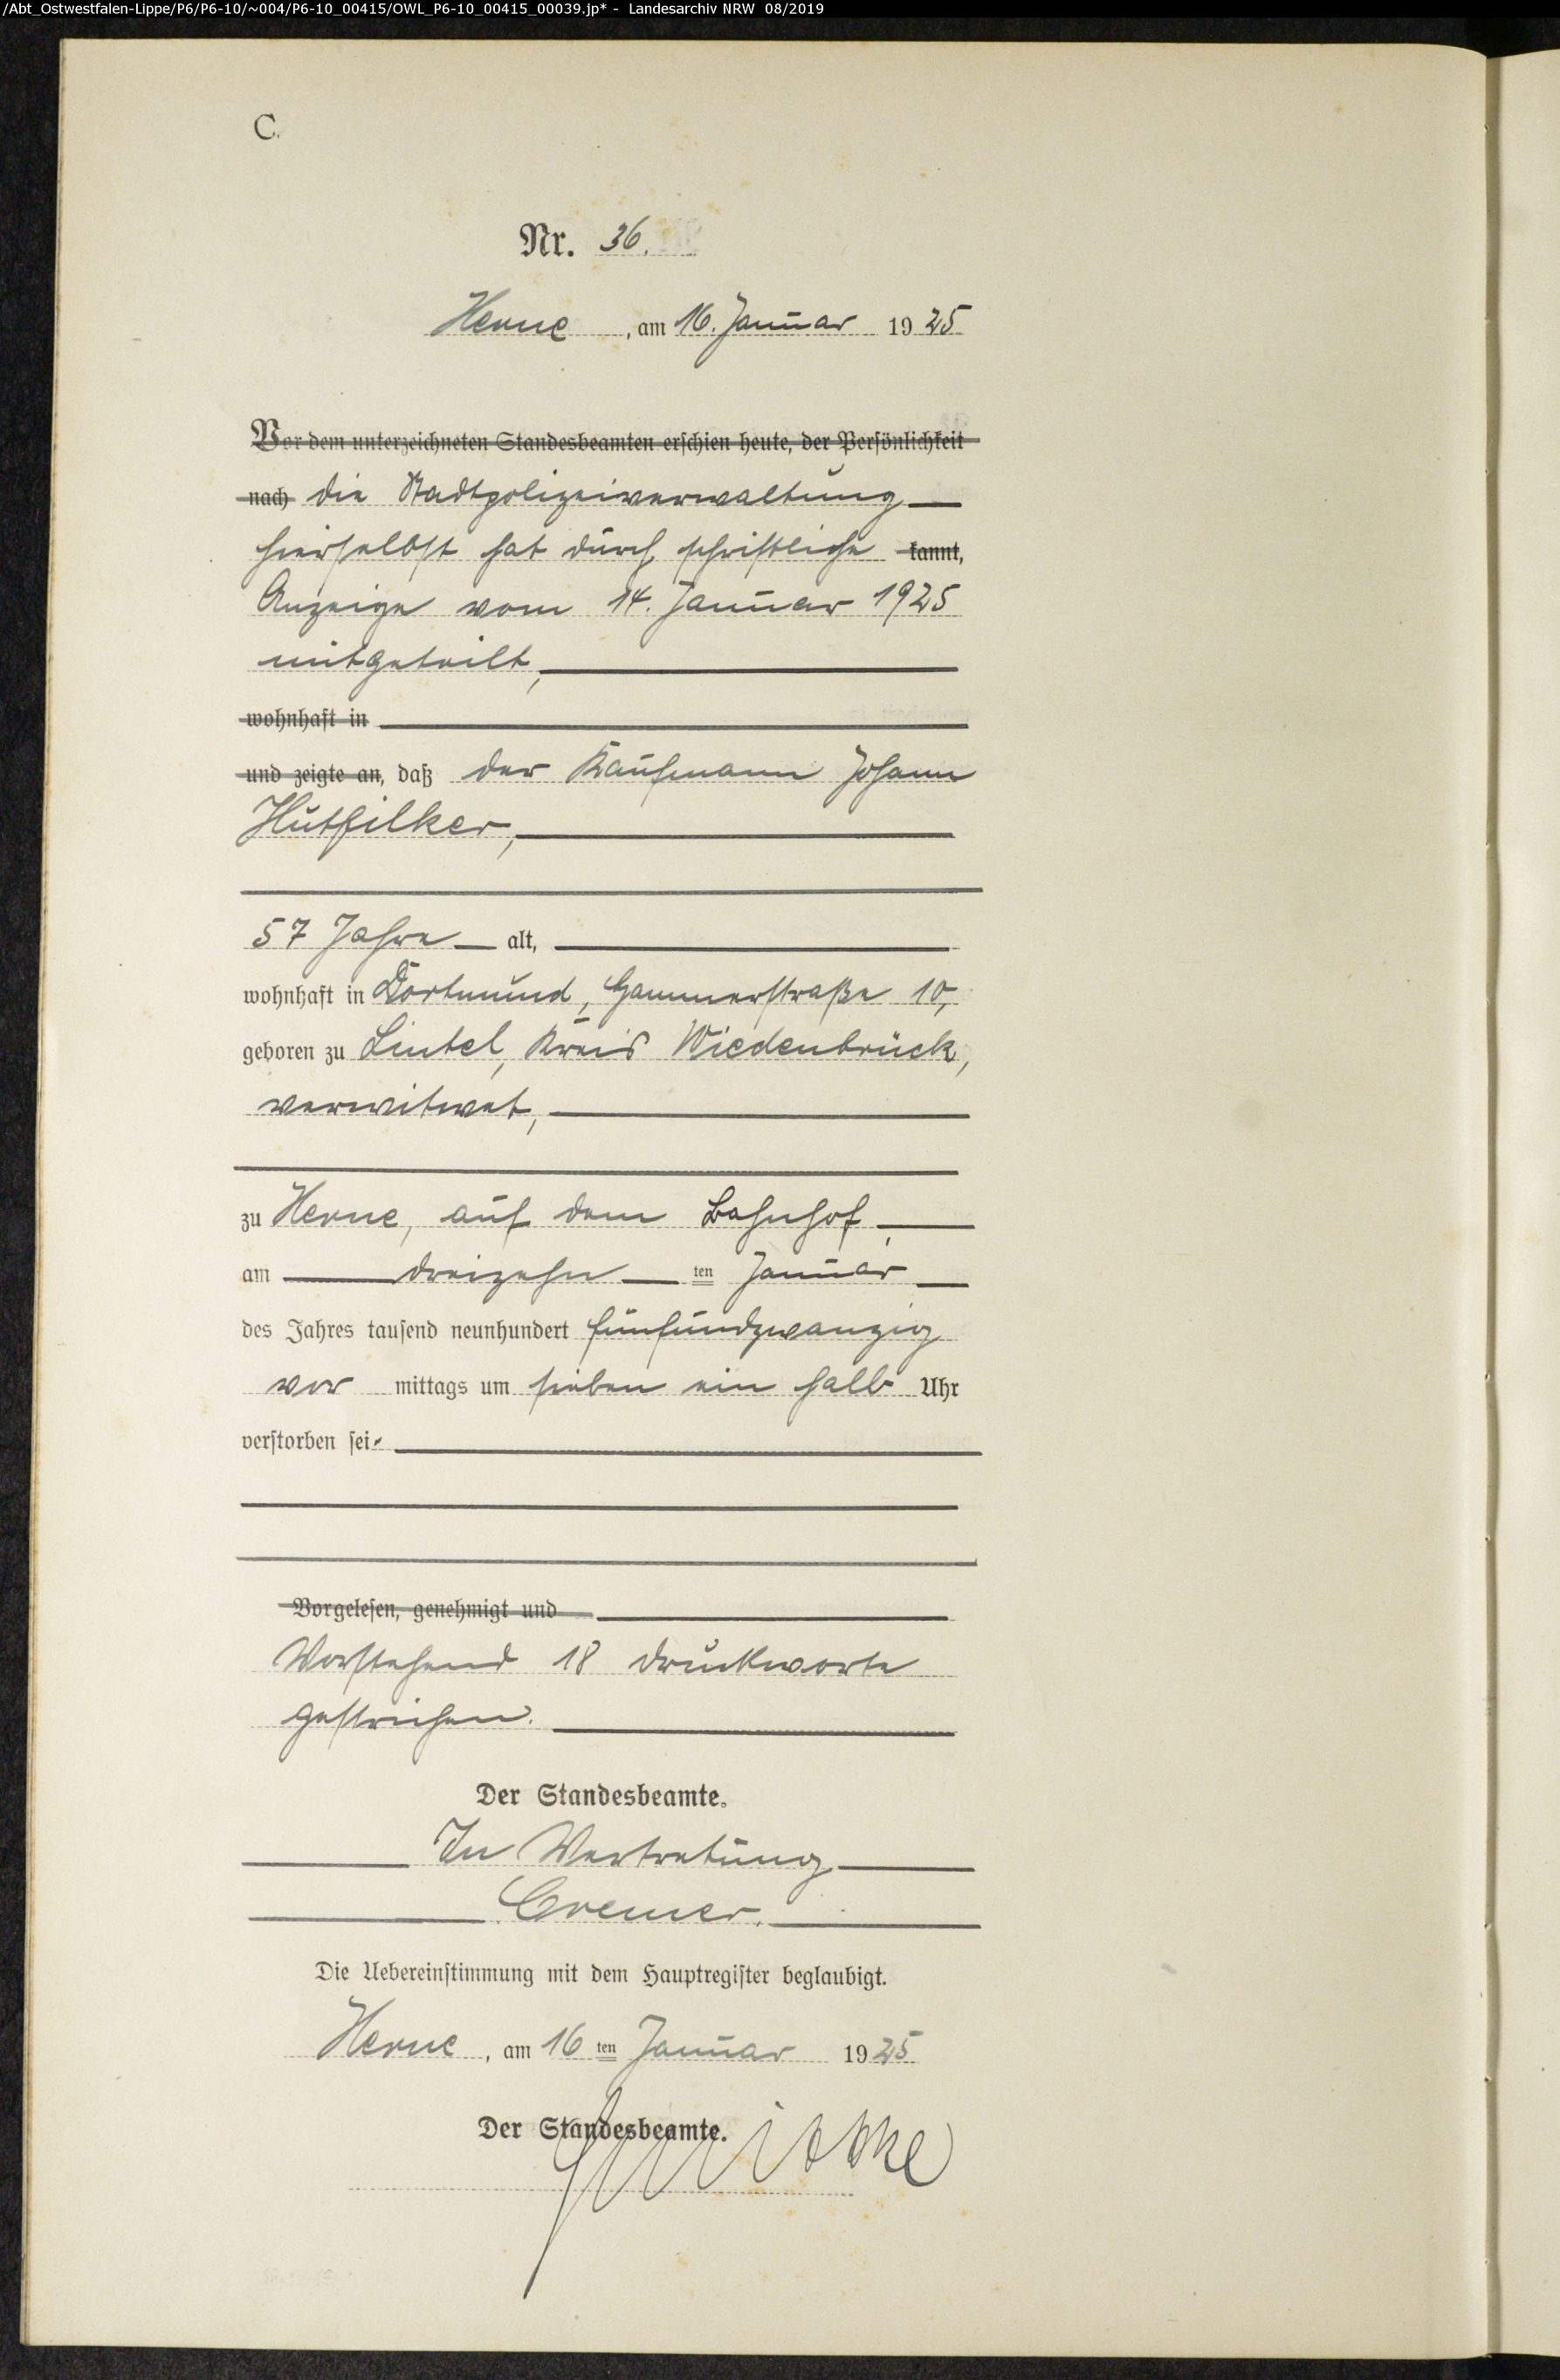 /Abt_Ostwestfalen-Lippe/P6/P6-10/~004/P6-10_00415/OWL_P6-10_00415_00039.jp* - Landesarchiv NRW 08/2019
C.
Nr. 36.
Herne, am 16. Januar 1925
Vor dem unterzeichneten Standesbeamten erschien heute, der Persönlichkeit
nach die Stadtpolizeiverwaltung
hierselbst hat durch schriftliche kannt,
Anzeige vom 14. Januar 1925
mitgeteilt,
wohnhaft in
und zeigte an, daß der Kaufmann Johann
Hutfilker,
57 Jahre alt,
wohnhaft in Dortmund, 10,
geboren zu Lintel, Kreis Wiedenbrück,
verwitwet,
zu Herne, auf dem Bahnhof,
am dreizehn ten Januar
des Jahres tausend neunhundert fünfundzwanzig
vor mittags um sieben ein halb Uhr
verstorben sei.
Vorgelesen, genehmigt und
Vorstehend 18 Druckworte
gestrichen.
Der Standesbeamte.
In Vertretung
Cremer.
Die Uebereinstimmung mit dem Hauptregister beglaubigt.
Herne, am 16 ten Januar 1925
Der Standesbeamte.